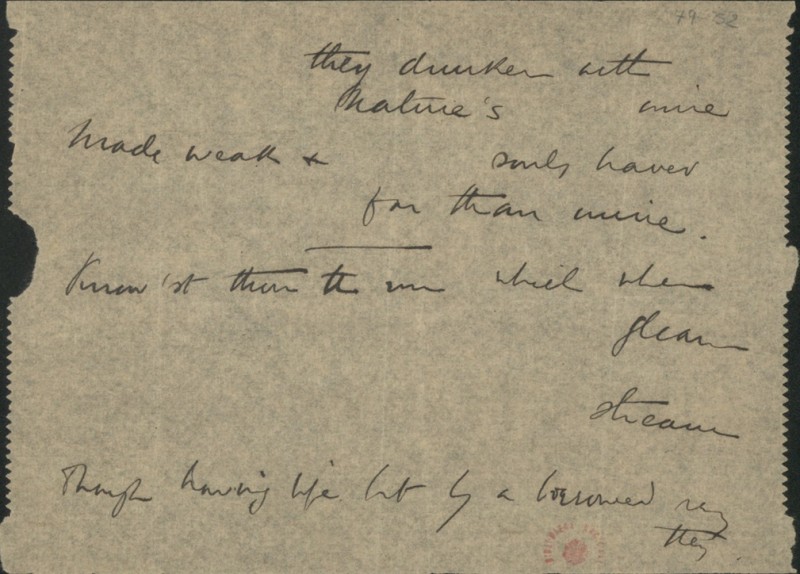 79 52
they drunken with
Nature's wine
Made weak & souls braver
far than mine.
Know'st thou the sun which when
gleam
stream
Though having life lit by a borrowed ray
they